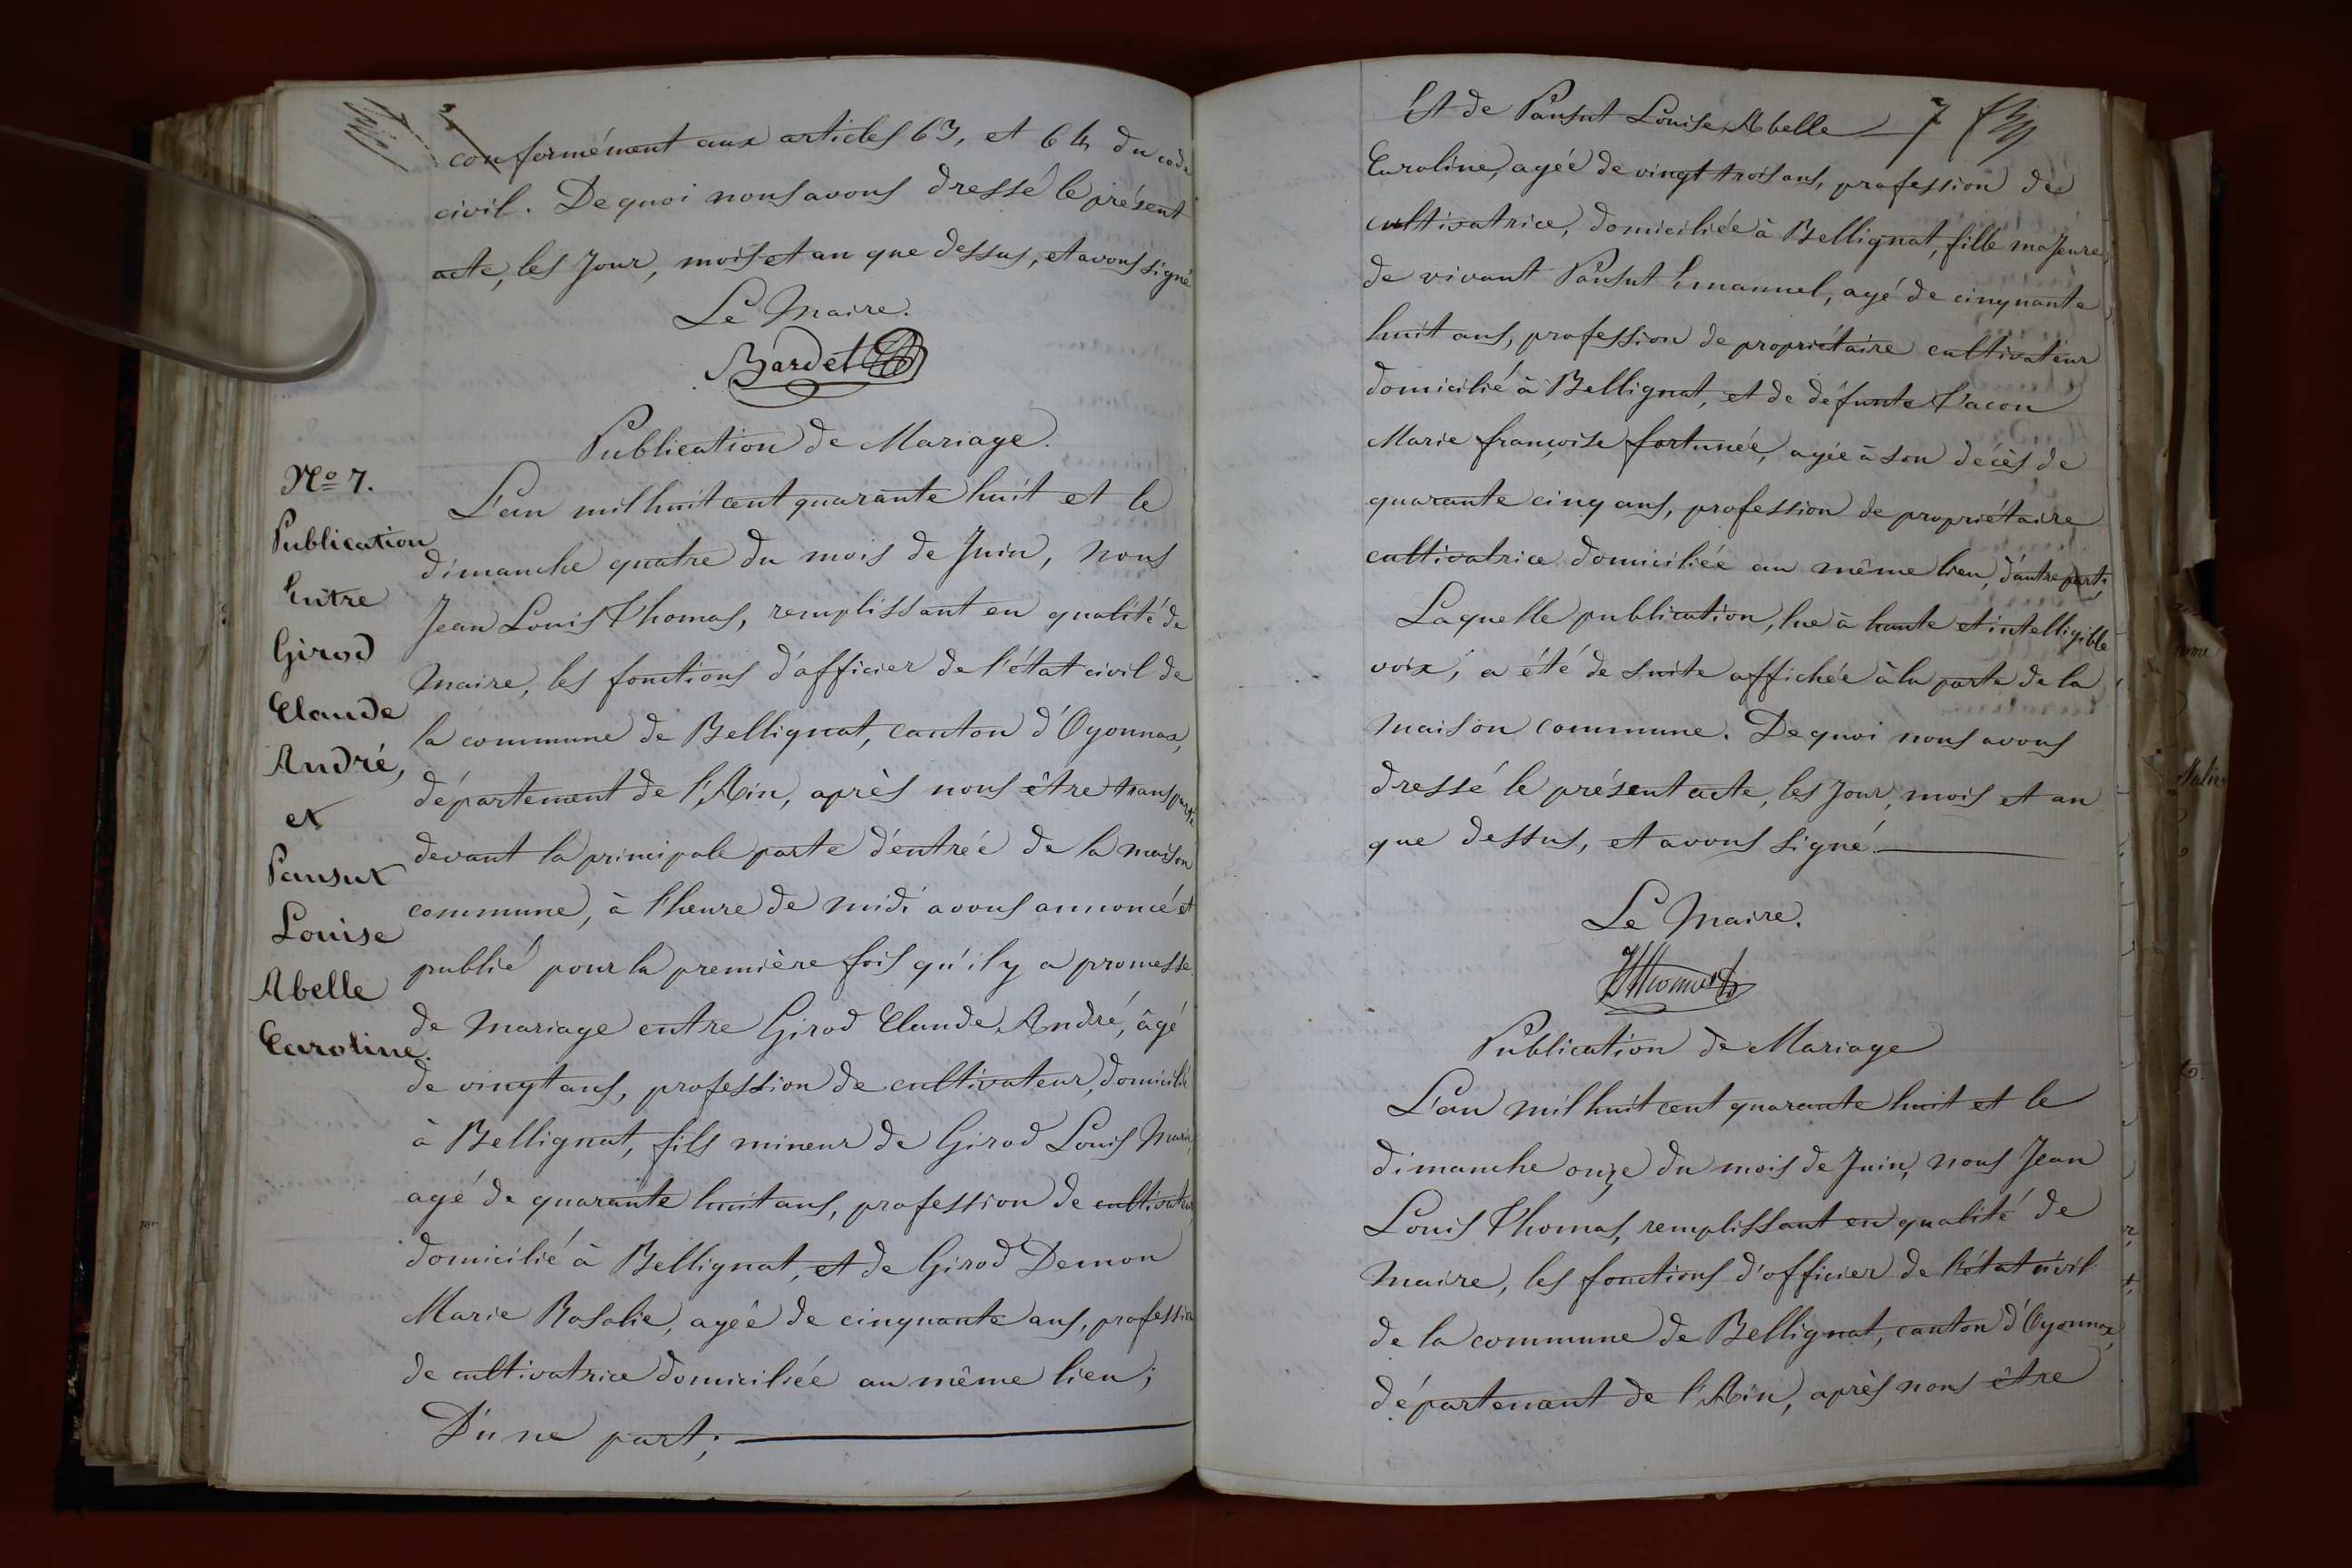 conformément aux articles 63, et 64 du code
civil. De quoi nous avons dressé le présent
acte, les Jour, mois et an que dessus, et avons signé
Le Maire.
Bardet
Publication de Mariage.
No 7.
Publication
Entre
Girod
Claude
André,
et
Pansut
Louise
Abelle
Caroline.
L'an mil huit cent quarante huit et le
dimanche quatre du mois de Juin, nous
Jean Louis Thomas, remplissant en qualité de
maire, les fonctions d'officier de l'état civil de
la commune de Bellignat, canton d'Oyonnax,
département de l'Ain, après nous être transporté
devant la principale porte d'entrée de la maison
commune, à l'heure de midi avons annoncé et
publié pour la première fois qu'il y a promesse
de mariage entre Girod Claude André, âgé
de vingt ans, profession de cultivateur, domicilié
à Bellignat, fils mineur de Girod Louis Marie,
agé de quarante huit ans, profession de cultivateur,
domicilié à Bellignat, et de Girod Demon
Marie Rosalie, agée de cinquante ans, profession
de cultivatrice domiciliée au même lieu;
D'une part;
Et de Pansut Louise Abelle 7
Caroline, agée de vingt trois ans, profession de
cultivatrice, domiciliée à Bellignat, fille majeure,
de vivant Pansut Emanuel, agé de cinquante
huit ans, profession de propriétaire cultivateur
domicilié à Bellignat, et de défunte Tacon
Marie françoise fortunée, agée à son décès de
quarante cinq ans, profession de propriétaire
cultivatrice domiciliée au même lieu, d'autre part;
Laquelle publication, lue à haute et intelligible
voix, a été de suite affichée à la porte de la
maison commune. De quoi nous avons
dressé le présent acte, les Jour, mois et an
que dessus, et avons signé.
Le Maire.
JLThomas
Publication de Mariage
L'an mil huit cent quarante huit et le
dimanche onze du mois de Juin, nous Jean
Louis Thomas, remplissant en qualité de
maire, les fonctions d'officier de l'état civil
de la commune de Bellignat, canton d'Oyonnax,
département de l'Ain, après nous être